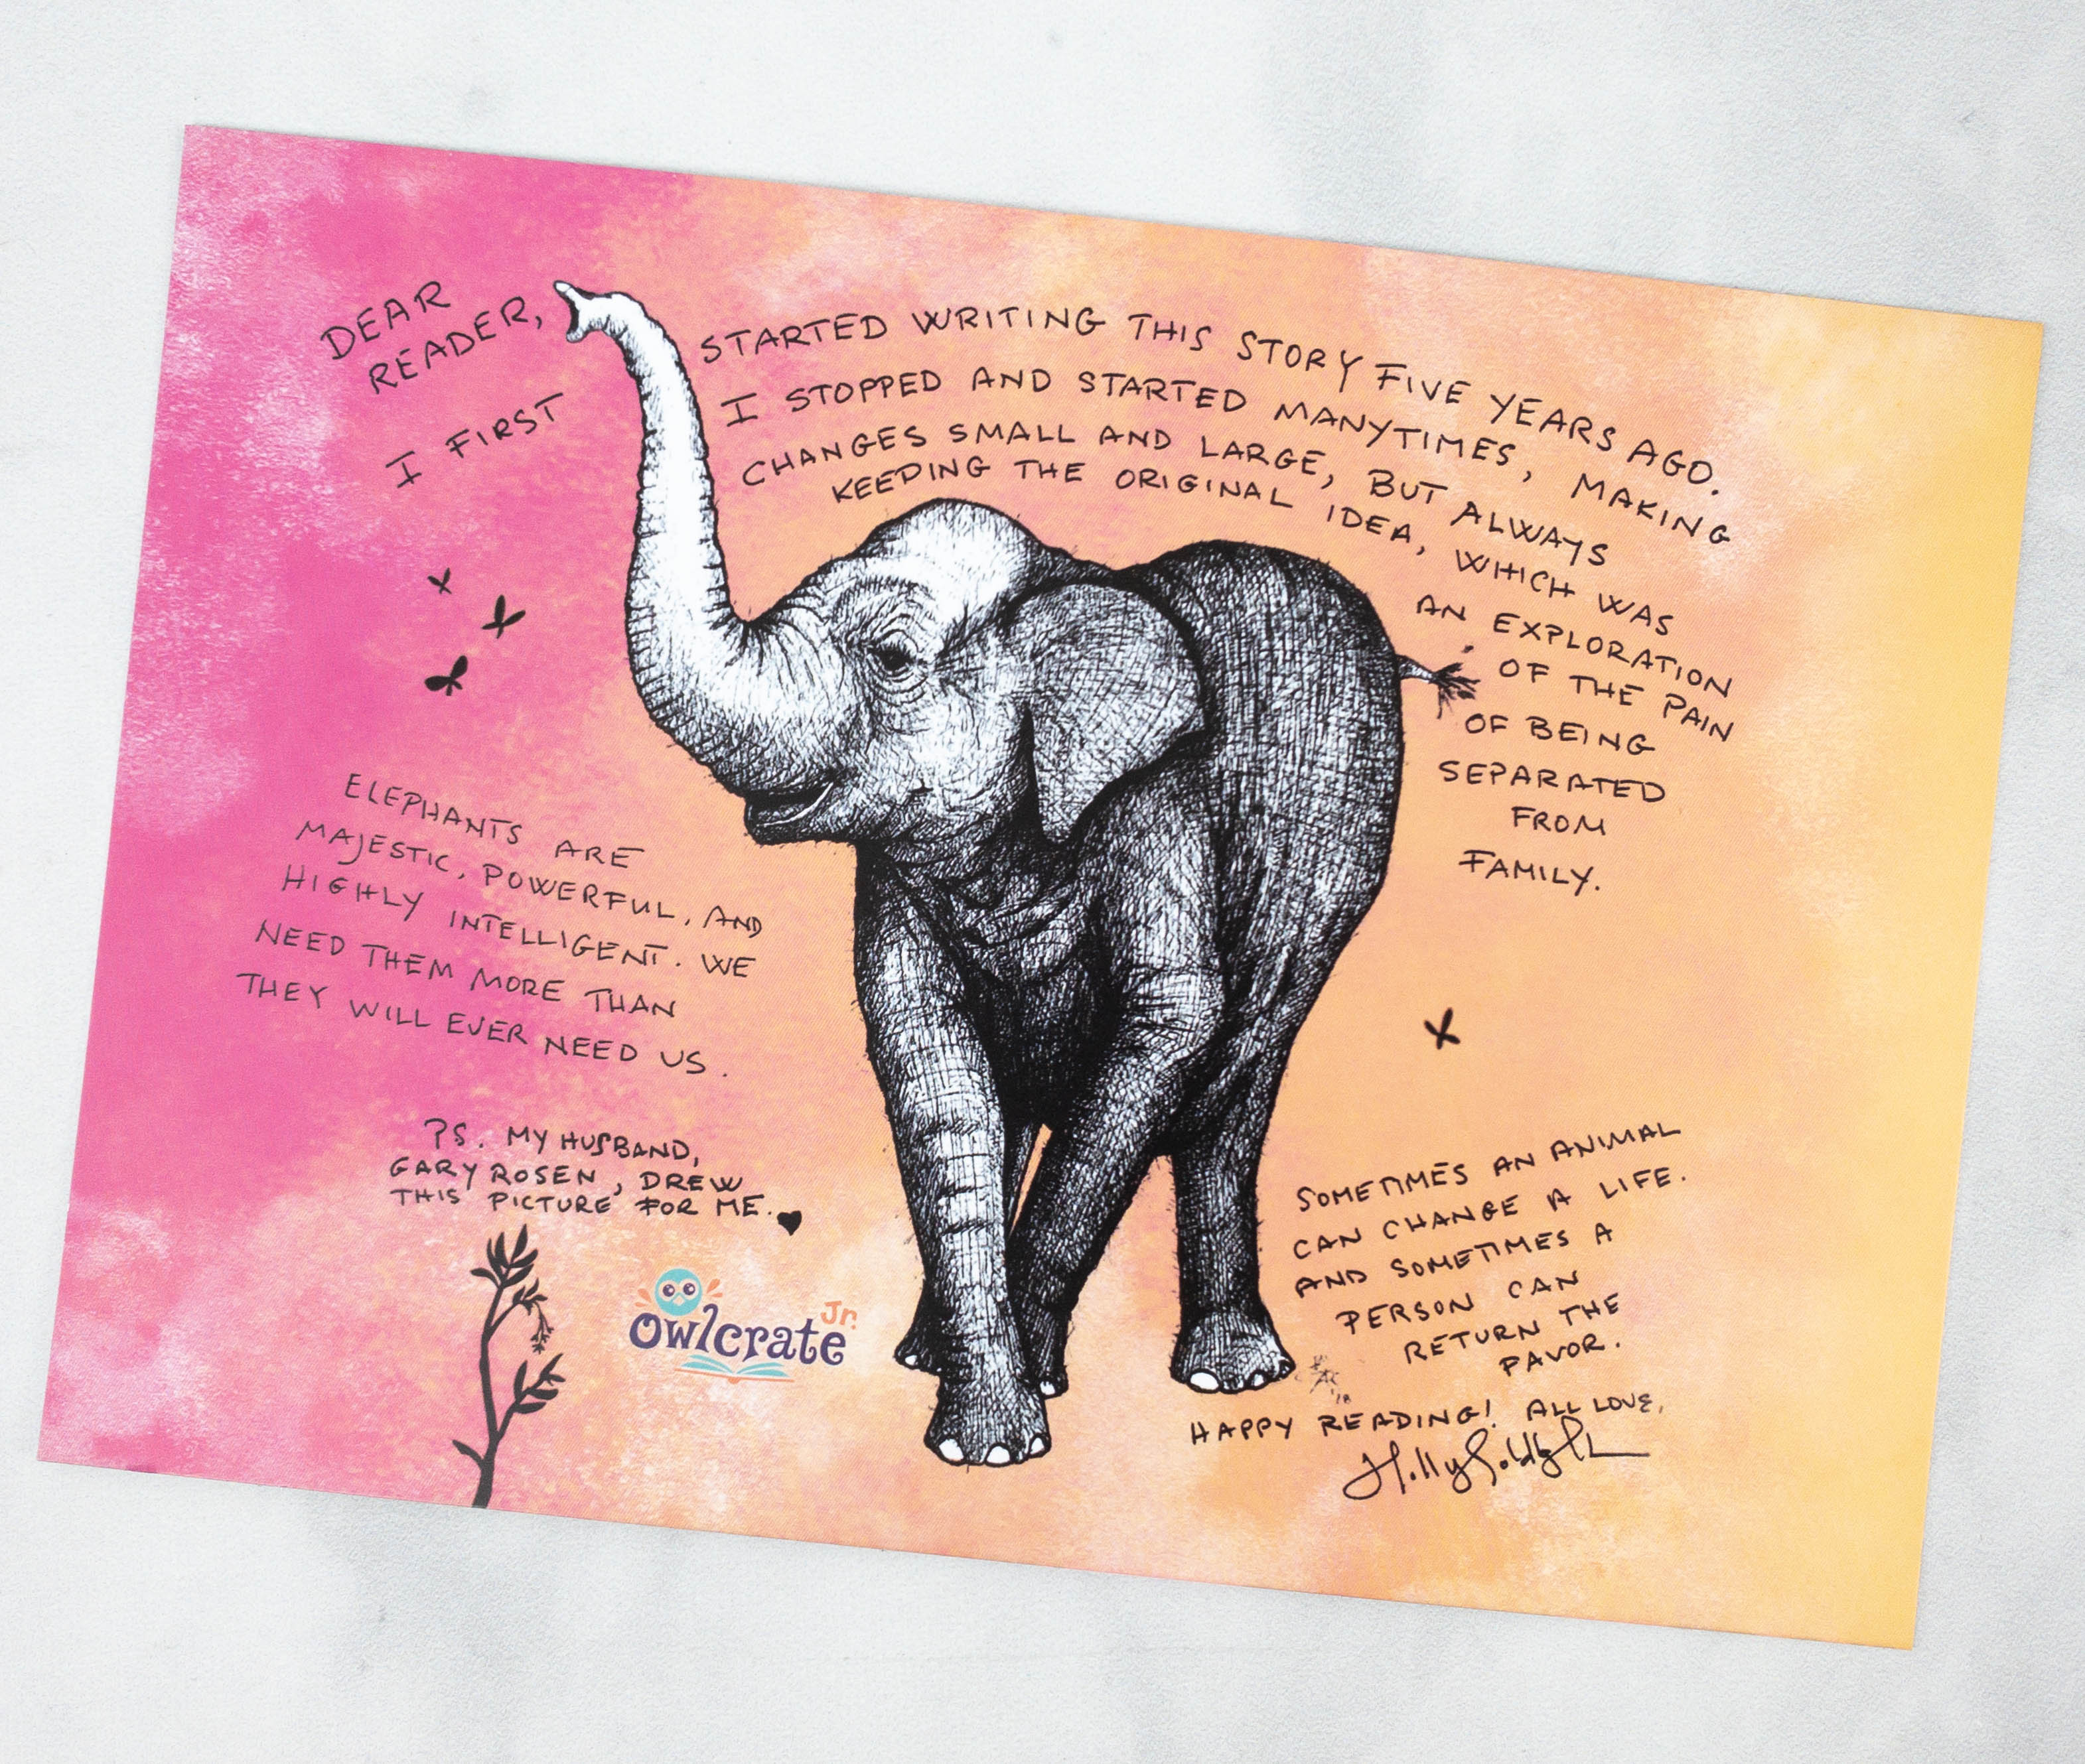 DEAR
READER,
I FIRST STARTED WRITING THIS STORY FIVE YEARS AGO.
I STOPPED AND STARTED MANYTIMES, MAKING
CHANGES SMALL AND LARGE, BUT ALWAYS
KEEPING THE ORIGINAL IDEA, WHICH WAS
AN EXPLORATION
OF THE PAIN
OF BEING
SEPARATED
FROM
FAMILY.
ELEPHANTS ARE
MAJESTIC, POWERFUL, AND
HIGHLY INTELLIGENT. WE
NEED THEM MORE THAN
THEY WILL EVER NEED US.
SOMETIMES AN ANIMAL
CAN CHANGE A LIFE.
AND SOMETIMES A
PERSON CAN
RETURN THE
FAVOR.
HAPPY READING! ALL LOVE,
Holly Goldberg Sloan
PS. MY HUSBAND,
GARY ROSEN, DREW
THIS PICTURE FOR ME.
Owlcrate Jr.